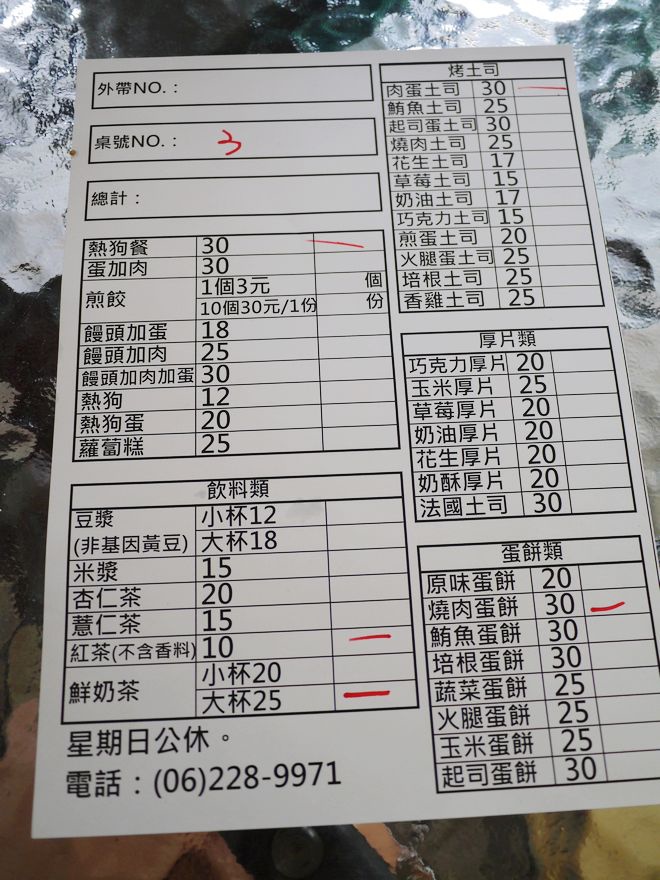 外帶NO.：
桌號NO.： 3
總計：
熱狗餐 30
蛋加肉 30
煎餃 1個3元 個
10個30元/1份 份
饅頭加蛋 18
饅頭加肉 25
饅頭加肉加蛋 30
熱狗 12
熱狗蛋 20
蘿蔔糕 25
飲料類
豆漿 小杯12
(非基因黃豆) 大杯18
米漿 15
杏仁茶 20
薏仁茶 15
紅茶(不含香料) 10
鮮奶茶 小杯20
大杯25
星期日公休。
電話：(06)228-9971
烤土司
肉蛋土司 30
鮪魚土司 25
起司蛋土司 30
燒肉土司 25
花生土司 17
草莓土司 15
奶油土司 17
巧克力土司 15
煎蛋土司 20
火腿蛋土司 25
培根土司 25
香雞土司 25
厚片類
巧克力厚片 20
玉米厚片 25
草莓厚片 20
奶油厚片 20
花生厚片 20
奶酥厚片 20
法國土司 30
蛋餅類
原味蛋餅 20
燒肉蛋餅 30
鮪魚蛋餅 30
培根蛋餅 30
蔬菜蛋餅 25
火腿蛋餅 25
玉米蛋餅 25
起司蛋餅 30